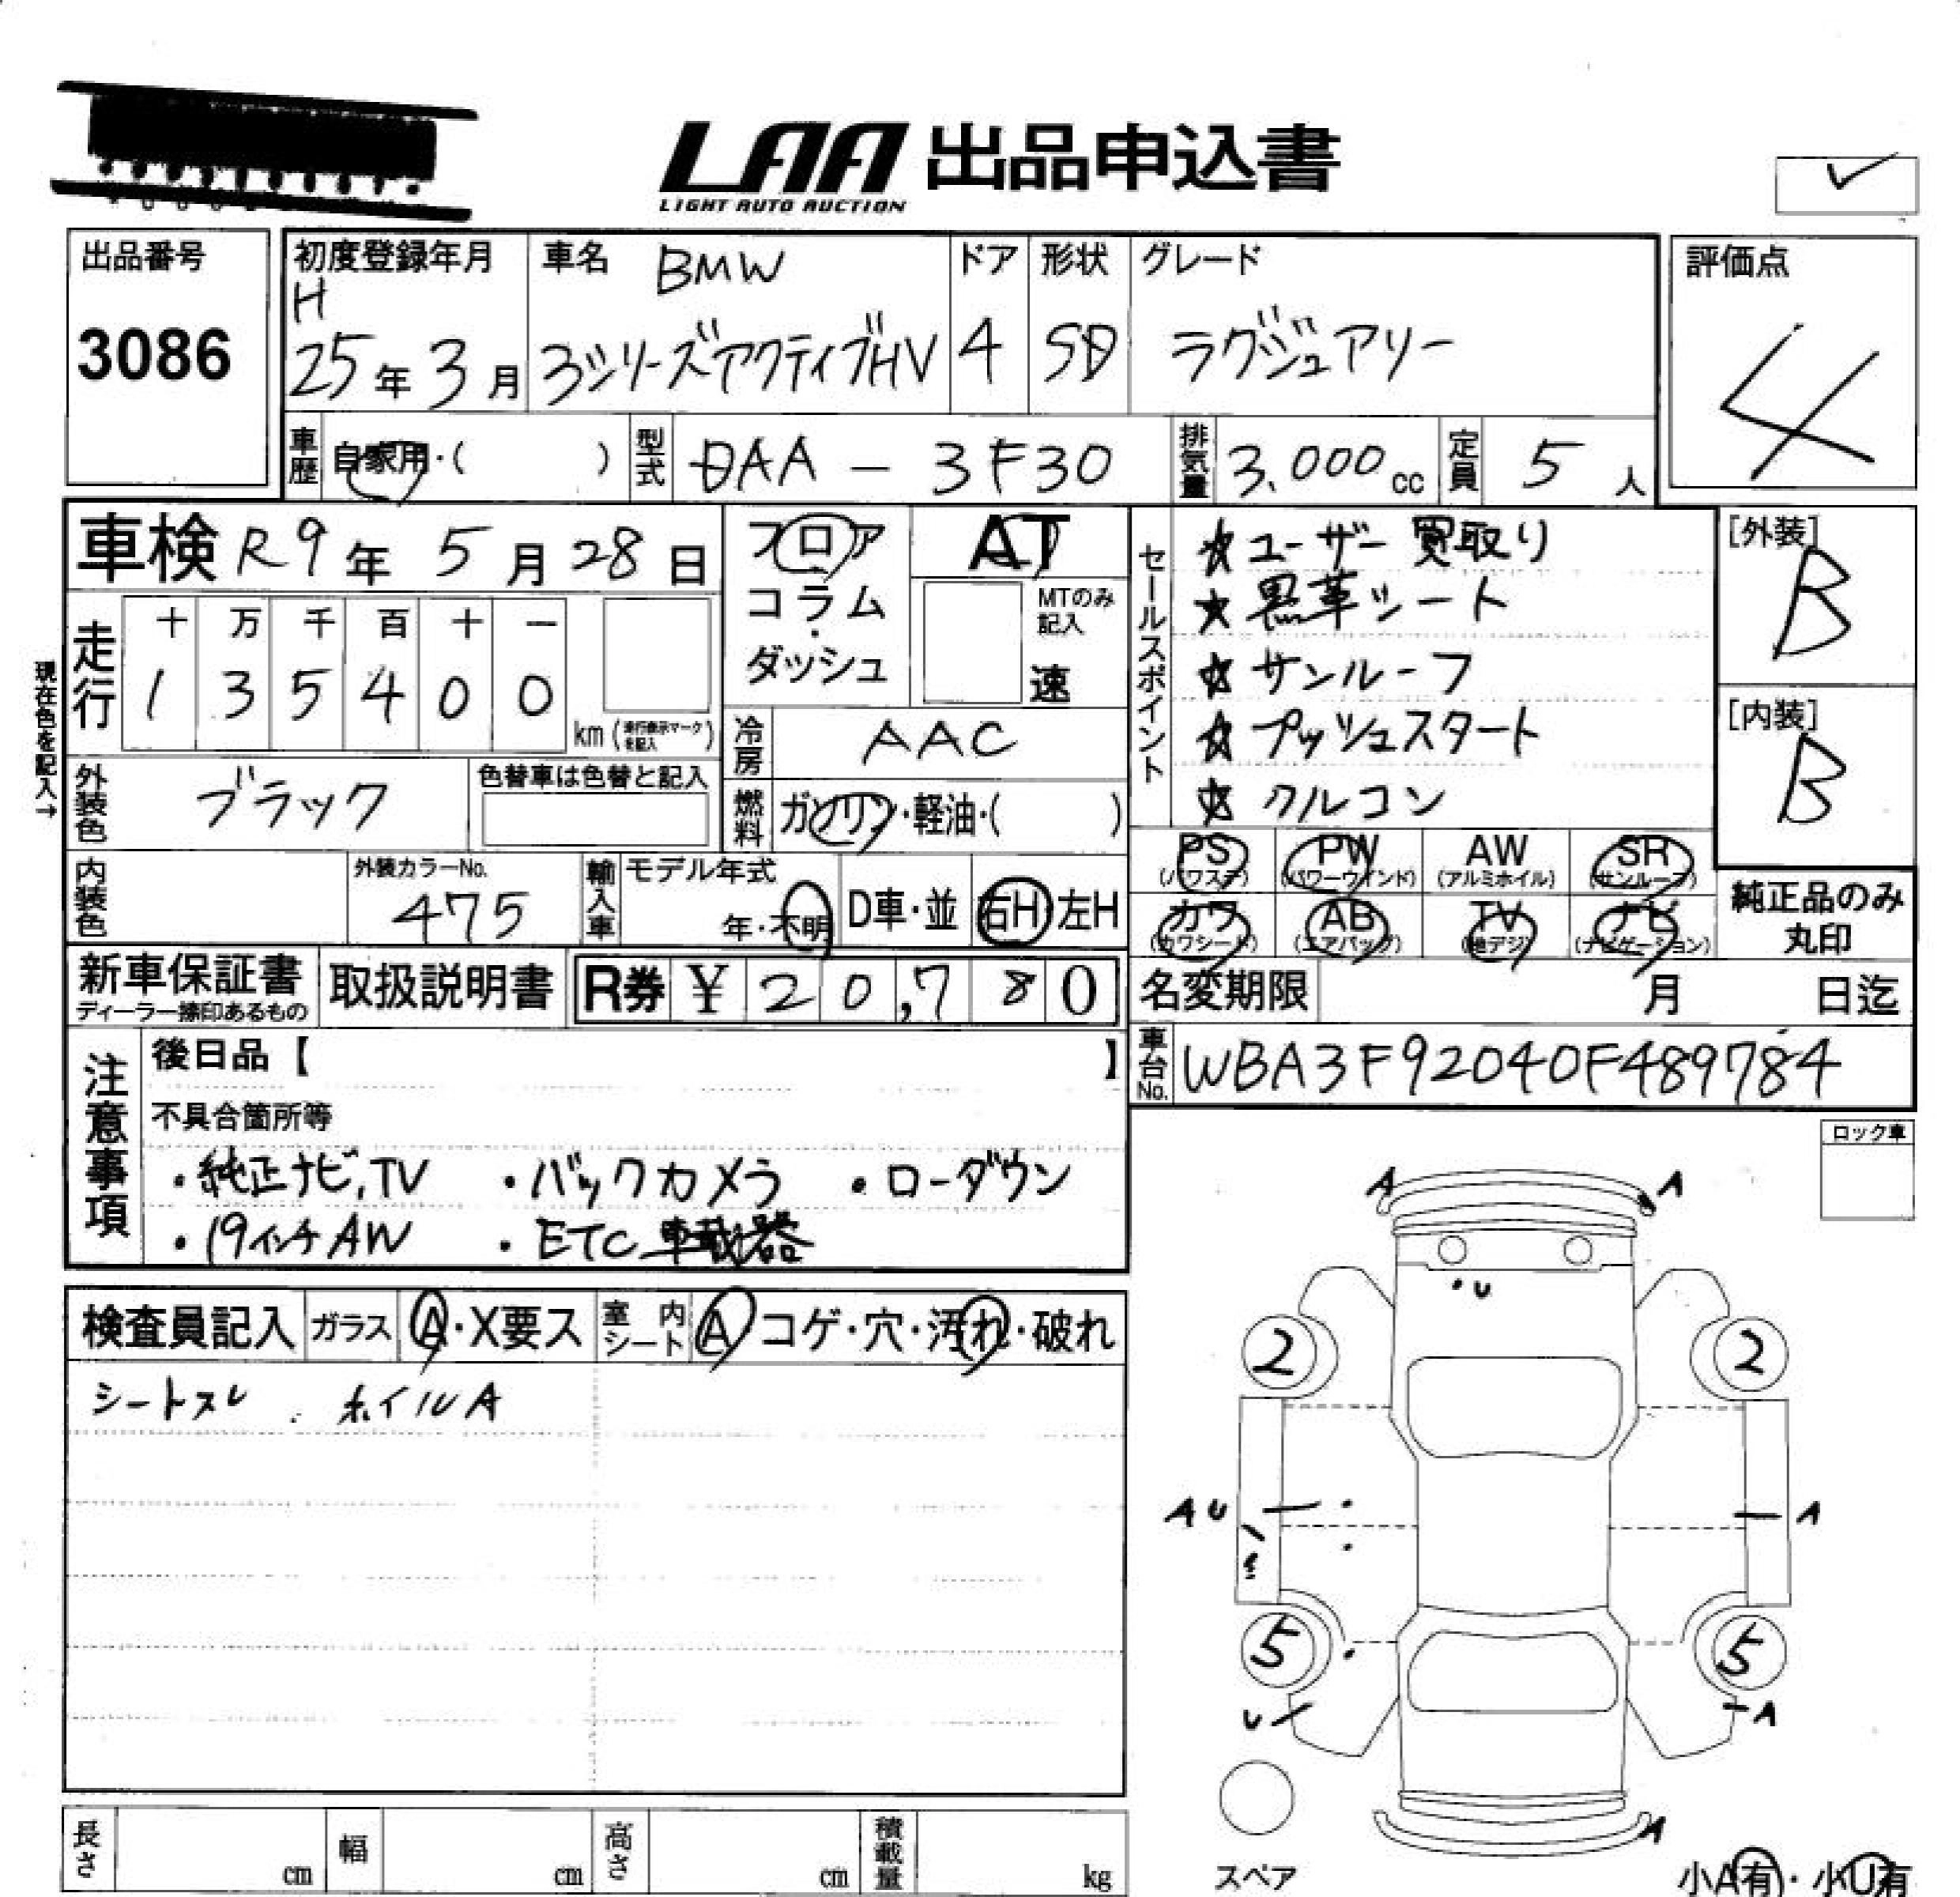 LAA 出品申込書
LIGHT AUTO AUCTION
出品番号
3086
初度登録年月
H
25年3月
車名 BMW
3シリーズアクティブHV
ドア
4
形状
SD
グレード
ラグジュアリー
評価点
4
車歴 自家用・( )
型式 DAA-3F30
排気量 3,000cc
定員 5人
車検 R9年5月28日
現在色を記入→
走行
十 万 千 百 十 一
1 3 5 4 0 0
km (走行表示マークを記入)
フロア
コラム
・
ダッシュ
AT
MTのみ
記入
速
冷房 AAC
燃料 ガソリン・軽油・( )
セールスポイント
☆ユーザー買取り
★黒革シート
☆サンルーフ
☆プッシュスタート
☆クルコン
[外装]
B
[内装]
B
外装色 ブラック
色替車は色替と記入
内装色
外装カラーNo.
475
輸入車 モデル年式
年・不明
D車・並
右H 左H
PS
(パワステ)
PW
(パワーウインド)
AW
(アルミホイル)
SR
(サンルーフ)
カワ
(カワシート)
AB
(エアバッグ)
TV
(地デジ)
ナビ
(ナビゲーション)
純正品のみ
丸印
新車保証書
ディーラー捺印あるもの
取扱説明書
R券 ¥ 20,780
名変期限 月 日迄
車台No. WBA3F92040F489784
注意事項
後日品【 】
不具合箇所等
・純正ナビ,TV ・バックカメラ ・ローダウン
・19インチAW ・ETC車載器
ロック車
検査員記入 ガラス A・X要ス 室内シート A コゲ・穴・汚れ・破れ
シートスレ . ホイルA
A A
・U
2 2
A U A
5 5
U A
A
スペア
小A有・小U有
長さ cm 幅 cm 高さ cm 積載量 kg